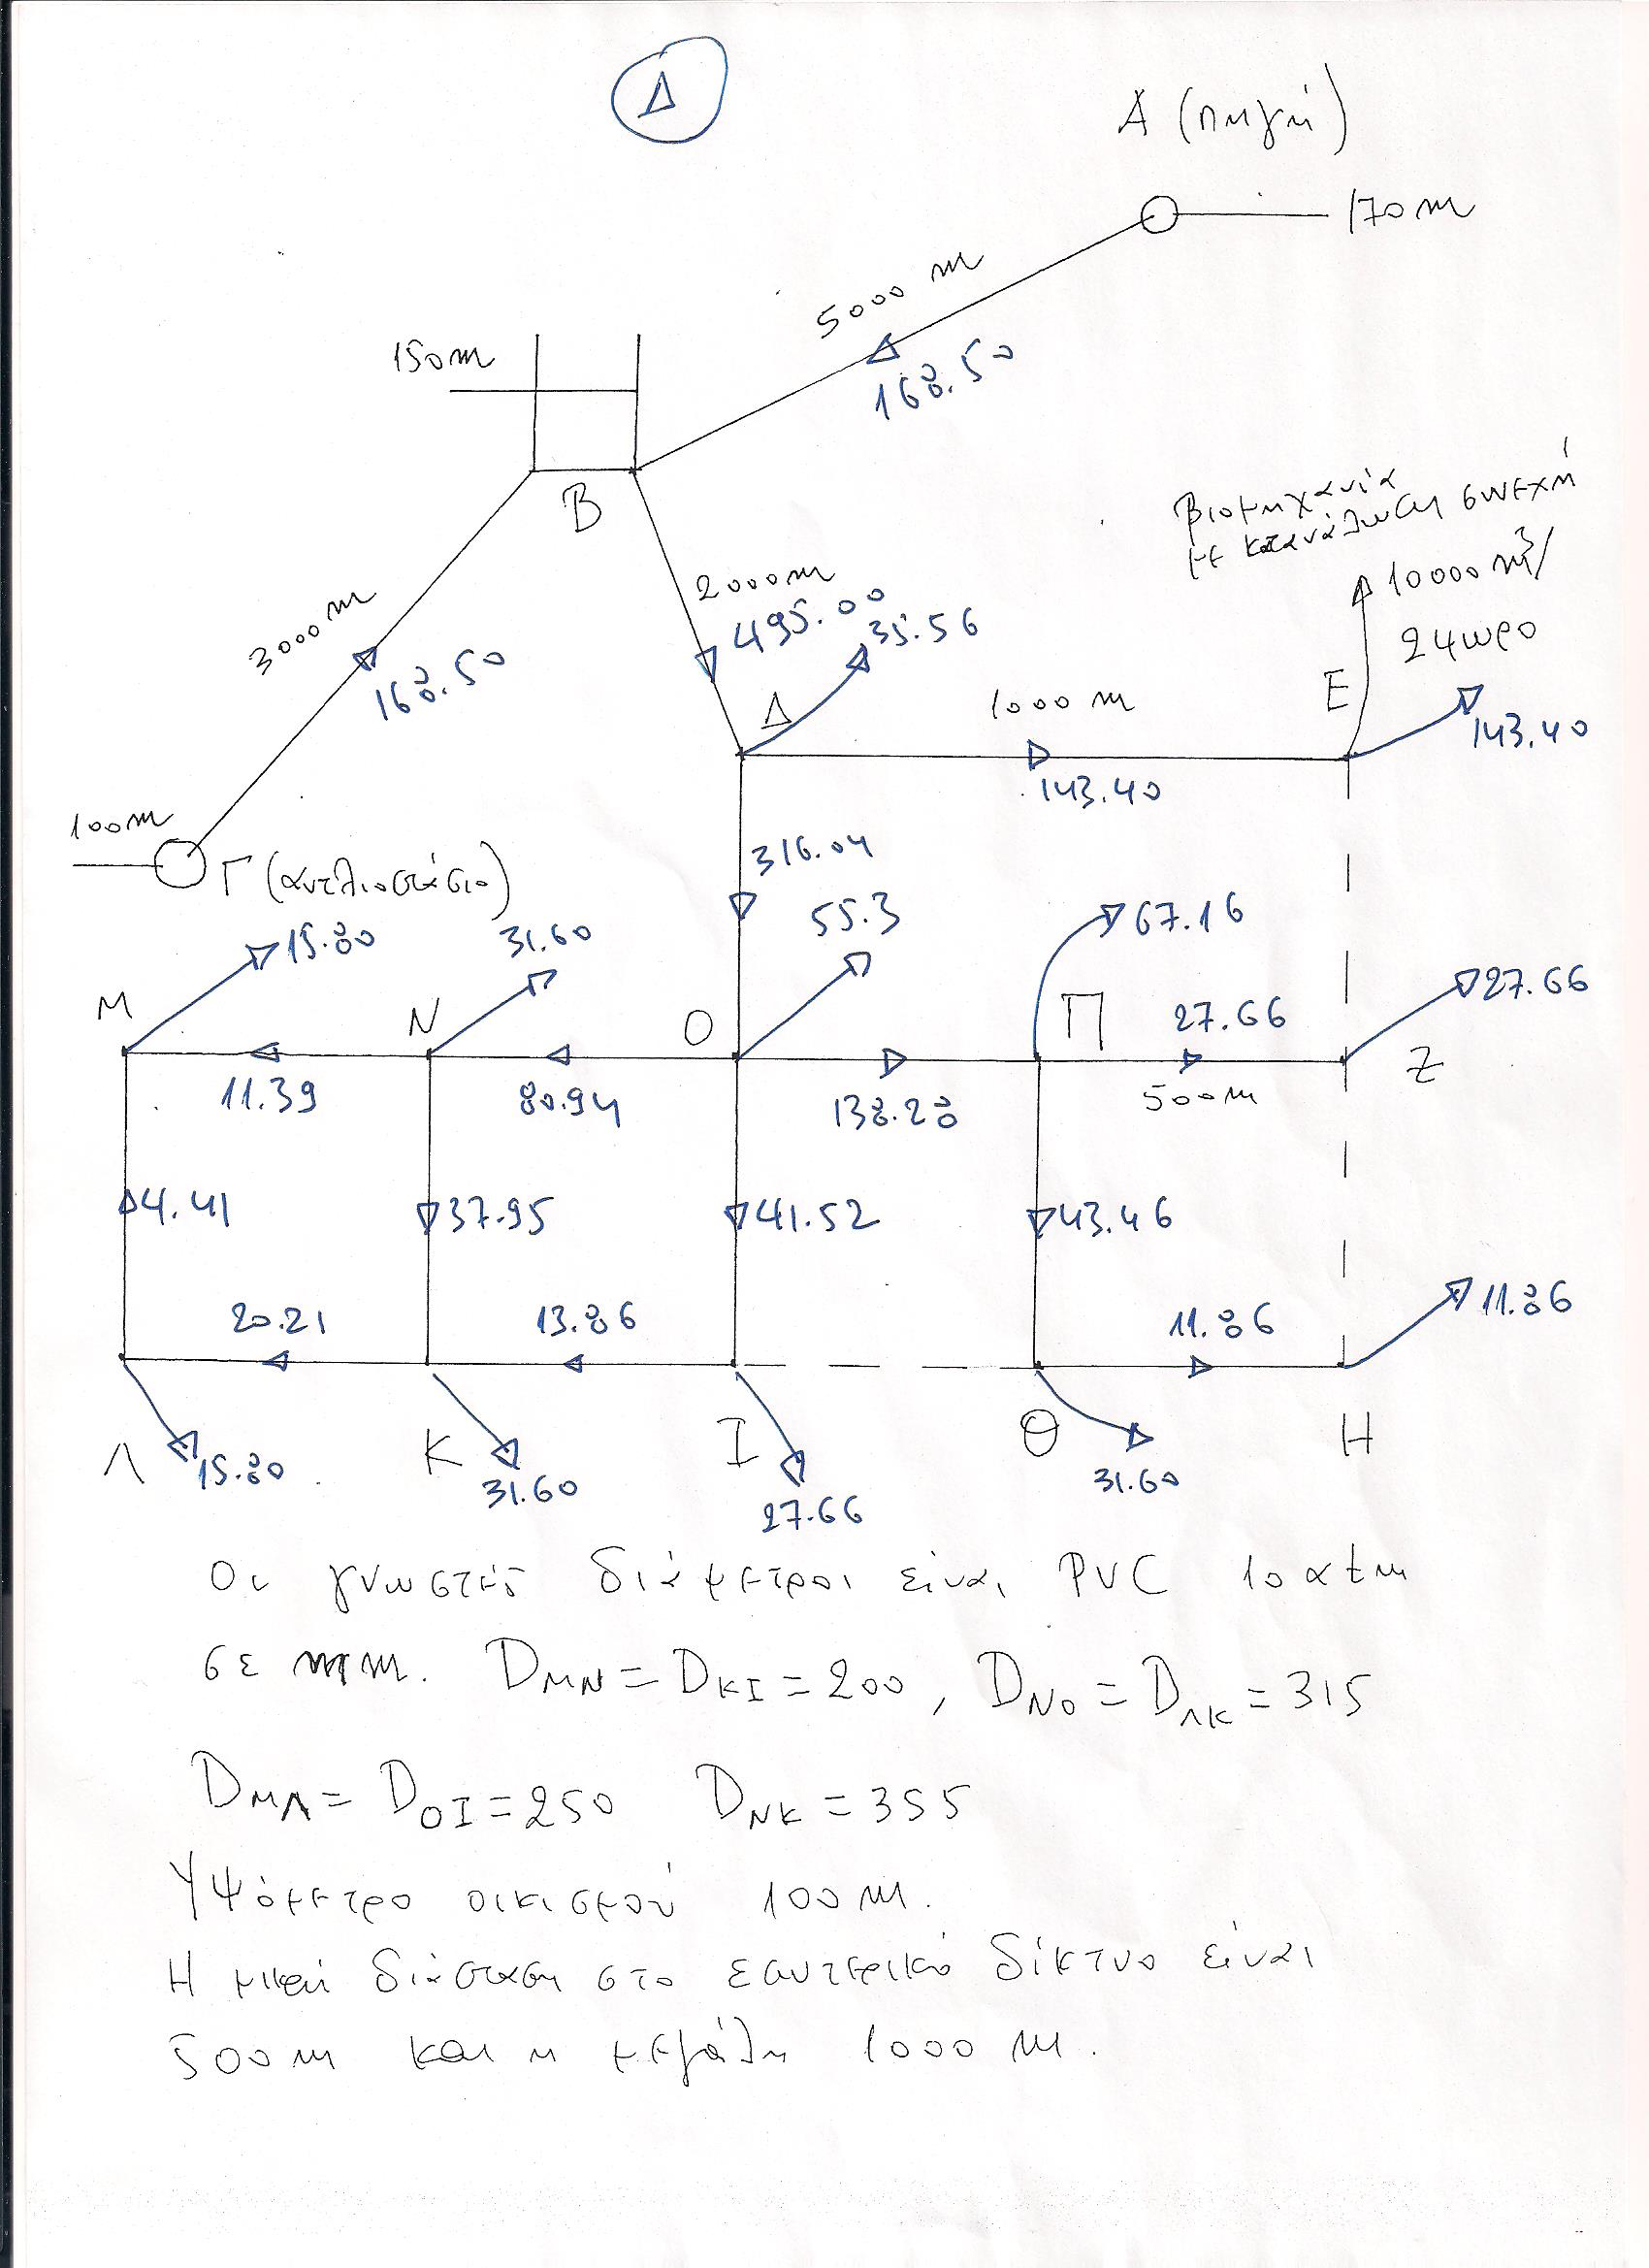 Δ
Α (πηγή)
170 m
5000 m
168.50
150 m
Β
βιομηχανία
με κατανάλωση συνεχή
10000 m³/
24ωρο
2000 m
495.00
35.56
3000 m
168.50
Δ
1000 m
Ε
143.40
143.40
100 m
Γ (αντλιοστάσιο)
316.04
15.80
31.60
55.3
67.16
Μ
Ν
Ο
Π
27.66
27.66
Ζ
11.39
80.94
138.28
500 m
4.41
37.95
41.52
43.46
20.21
13.86
11.86
11.86
Λ
15.80
Κ
31.60
Ι
27.66
Θ
31.60
Η
Οι γνωστές διάμετροι είναι PVC 10 atm
σε mm. DΜΝ = DΚΙ = 200, DΝΟ = DΛΚ = 315
DΜΛ = DΟΙ = 250 DΝΚ = 355
Υψόμετρο οικισμού 100 m.
Η μικρή διάσταση στο εσωτερικό δίκτυο είναι
500 m και η μεγάλη 1000 m.